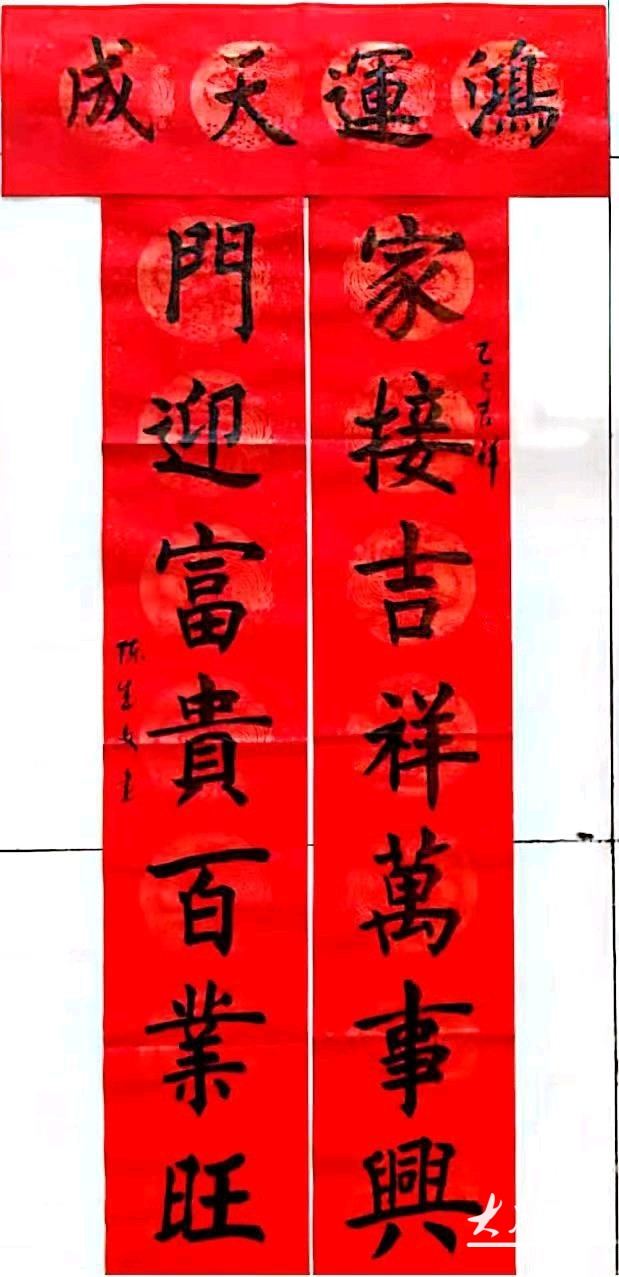 鴻運天成
家接吉祥萬事興
乙巳吉祥
門迎富貴百業旺